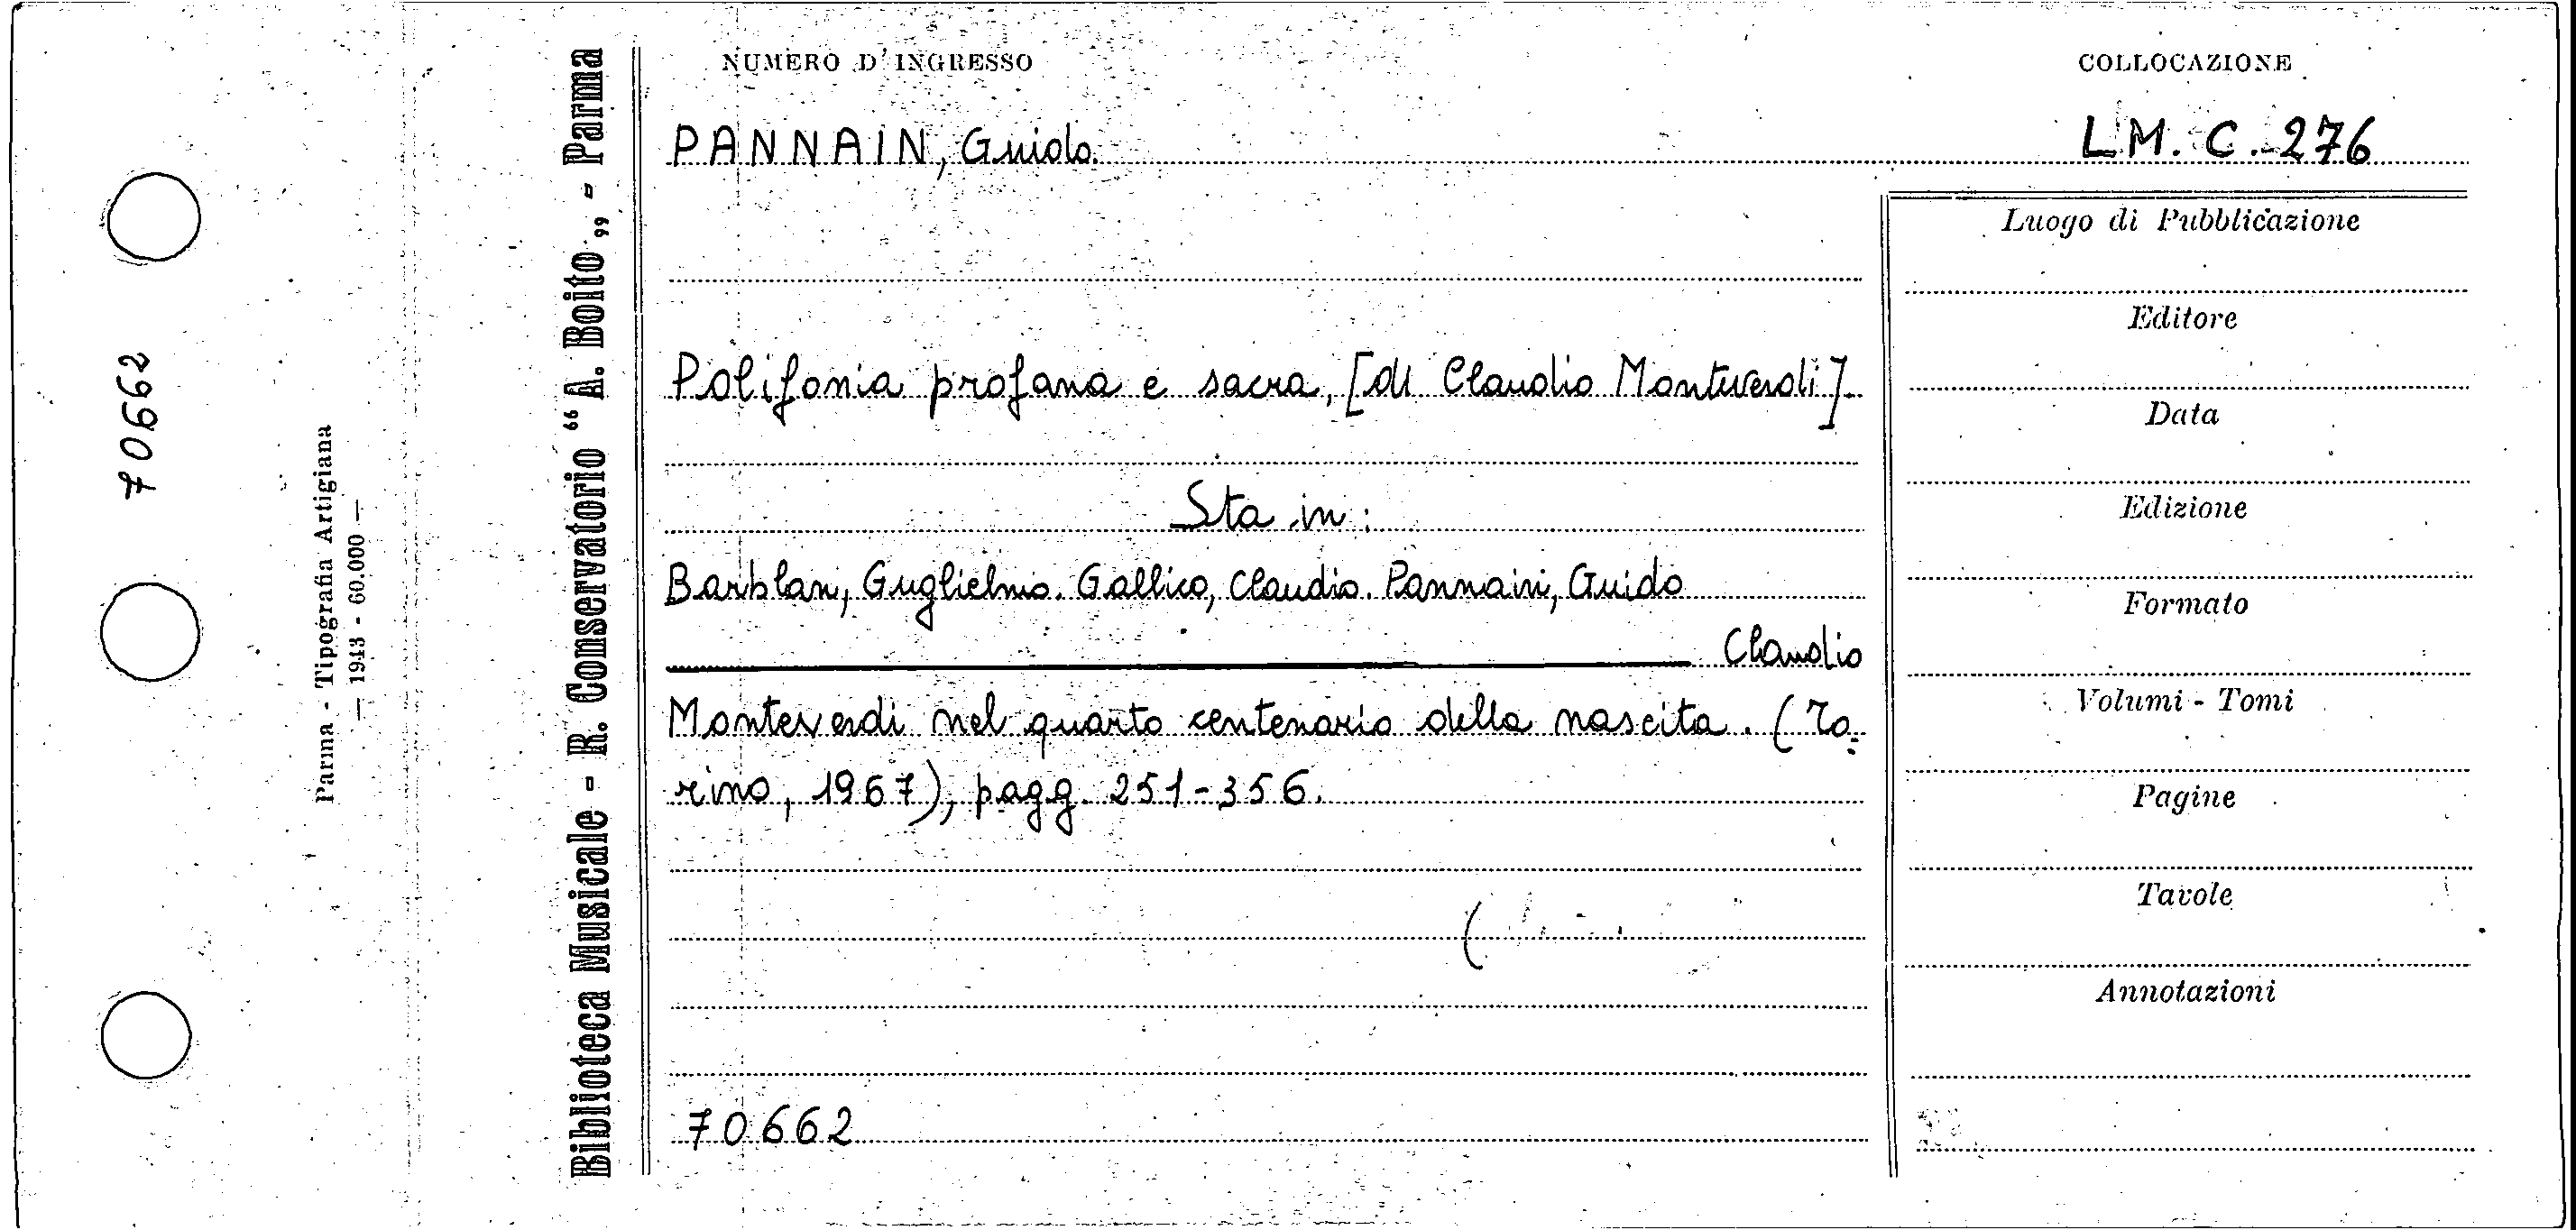 70662
Parma - Tipografia Artigiana
— 1943 - 60.000 —
Biblioteca Musicale - R. Conservatorio “A. Boito„ - Parma
NUMERO D'INGRESSO
COLLOCAZIONE
PANNAIN, Guido.
LM. C.-276
Polifonia profana e sacra, [di Claudio Monteverdi].
Sta in:
Barblan, Guglielmo. Gallico, Claudio. Pannain, Guido
Claudio
Monteverdi nel quarto centenario della nascita. (To=
rino, 1967), pagg. 251-356.
70662
Luogo di Pubblicazione
Editore
Data
Edizione
Formato
Volumi - Tomi
Pagine
Tavole
Annotazioni